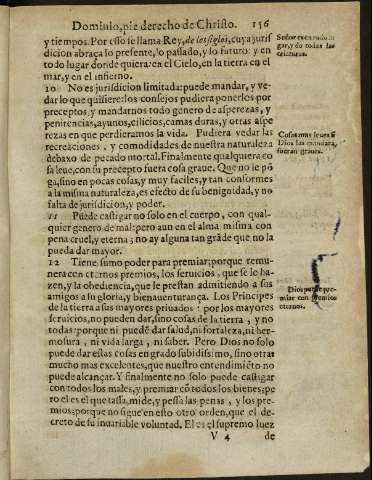 Dominio, pie derecho de Christo. 156
y tiempos. Por esso se llama Rey, de los siglos, cuya jurisdicion abraça lo presente, lo passado, y lo futuro: y en todo lugar donde quiera: en el Cielo, en la tierra en el mar, y en el infierno.
Señor en todo lugar, y de todas las criaturas.
10 No es jurisdicion limitada: puede mandar, y vedar lo que quisiere: los consejos pudiera ponerlos por preceptos, y mandarnos todo genero de asperezas, y penitencias, ayunos, cilicios, camas duras, y otras asperezas en que perdieramos la vida. Pudiera vedar las recreaciones, y comodidades de nuestra naturaleza debaxo de pecado mortal. Finalmente qualquiera cosa leue, con su precepto fuera cosa graue. Que no le põga, sino en pocas cosas, muy faciles, y tan conformes a la misma naturaleza, es efecto de su benignidad, y no falta de jurisdicion, y poder.
Cosas mas leues si Dios las mandara, fueran graues.
11 Puede castigar no solo en el cuerpo, con qualquier genero de mal: pero aun en el alma misma con pena cruel, y eterna; no ay alguna tan grãde que no la pueda dar mayor.
12 Tiene sumo poder para premiar; porque remunera con eternos premios, los seruicios, que se le hazen, y la obediencia, que le prestan admitiendo a sus amigos a su gloria, y bienauenturança. Los Principes de la tierra a sus mayores priuados: por los mayores seruicios, no pueden dar, sino cosas de la tierra, y no todas: porque ni puedẽ dar salud, ni fortaleza, ni hermosura, ni vida larga, ni saber. Pero Dios no solo puede dar estas cosas en grado subidissimo, sino otras mucho mas excelentes, que nuestro entendimiẽto no puede alcançar. Y finalmente no solo puede castigar con todos los males, y premiar cõ todos los bienes; pero el es el que tassa, mide, y pessa las penas, y los premios: porque no sigue en esto otro orden, que el decreto de su inuariable voluntad. El es el supremo Iuez
Dios puede premiar con premios eternos.
V 4 de